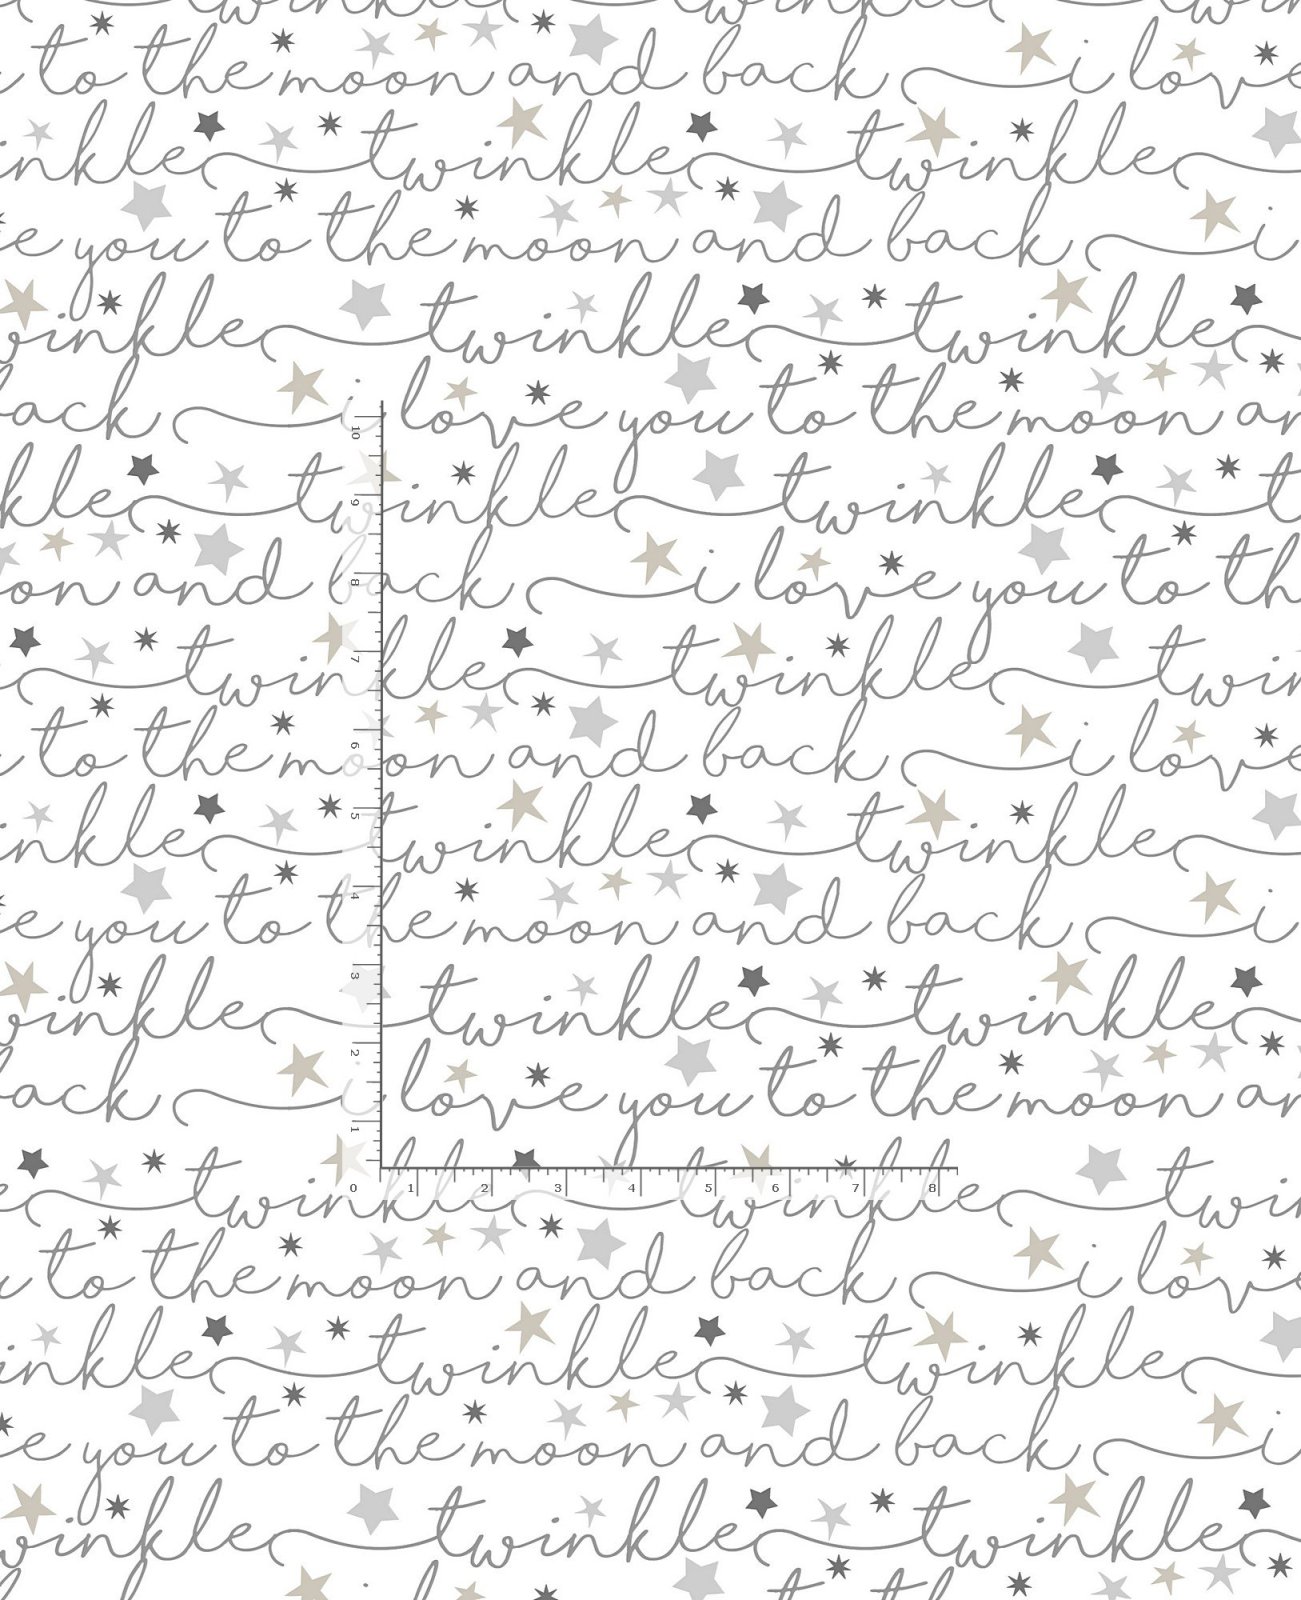 to the moon and back i love
inkle twinkle twinkle
e you to the moon and back i
winkle twinkle twinkle
back i love you to the moon an
kle twinkle twinkle t
oon and back i love you to th
twinkle twinkle twin
to the moon and back i love
inkle twinkle twinkle
e you to the moon and back i
winkle twinkle twinkle
back i love you to the moon an
twinkle twinkle twin
to the moon and back i love
inkle twinkle twinkle
e you to the moon and back i
winkle twinkle twinkle
10
9
8
7
6
5
4
3
2
1
0 1 2 3 4 5 6 7 8